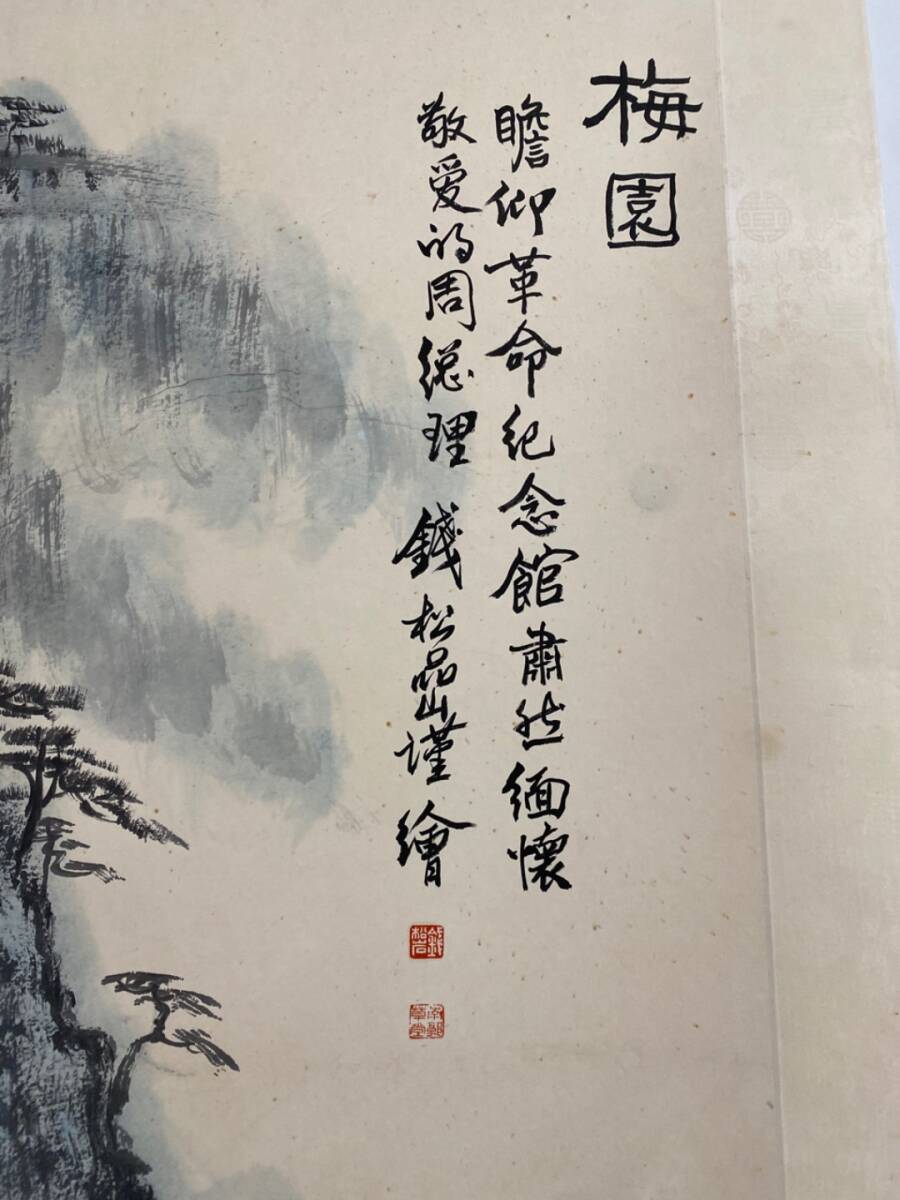 梅園
瞻仰革命纪念館肅然缅懷
敬爱的周總理 錢松嵒謹繪
錢松嵒